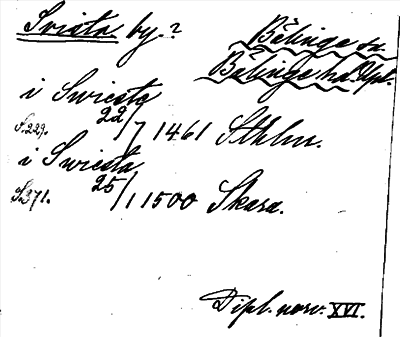 Svista by.?
Bälinge sn.
Bälinge hd. Upl.
i Swiesta
S. 229. 22/7 1461 Sthlm.
i Swiesta
S. 371. 25/1 1500 Skara.
Dipl. norv. XVI.